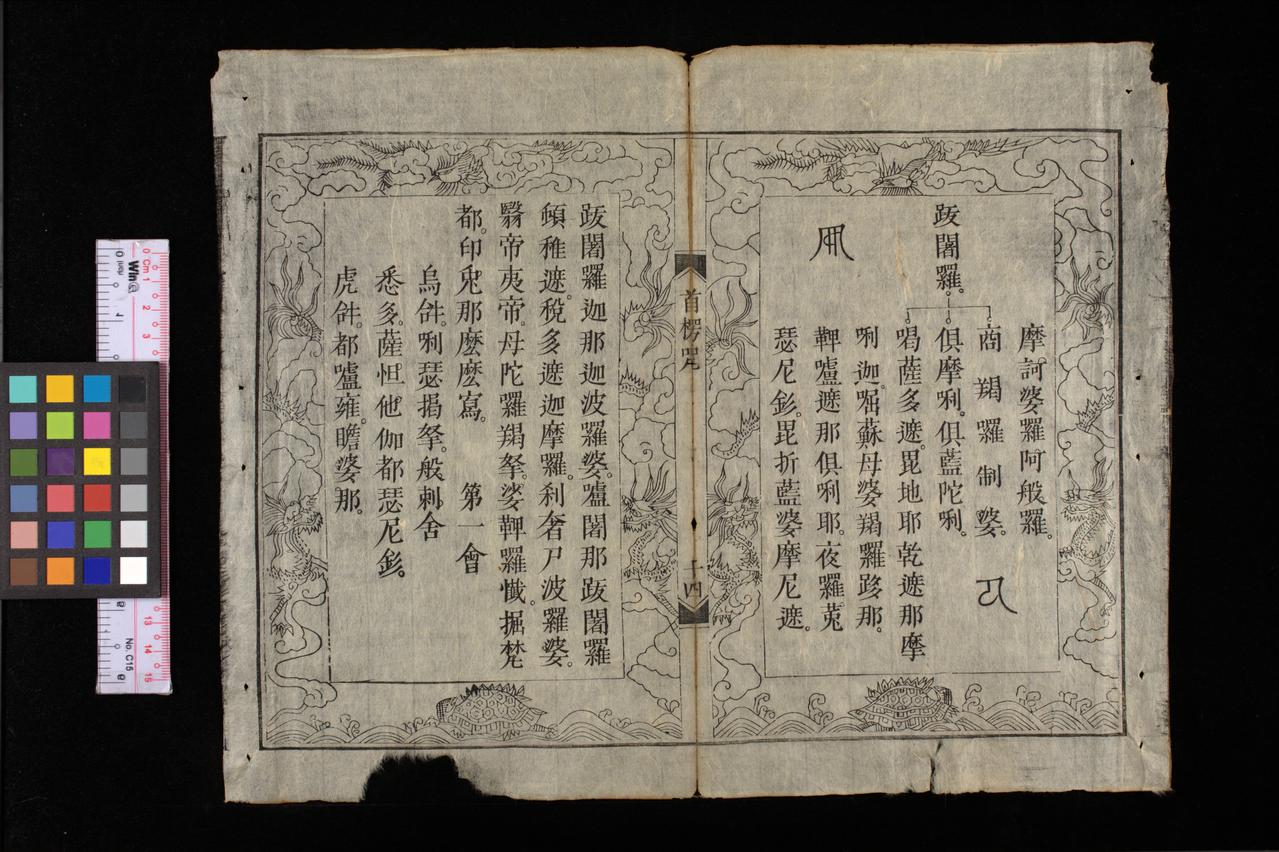 摩訶婆羅阿般羅。
商羯羅制婆。
跋闍羅。
俱摩唎。俱藍陀唎。
唱薩多遮。毘地耶乾遮那摩
唎迦。啒蘇母婆羯羅跢那。
鞞嚧遮那俱唎耶。夜羅菟
瑟尼釤。毘折藍婆摩尼遮。
首楞咒
十四
跋闍羅迦那迦波羅婆。嚧闍那跋闍羅
頓稚遮。稅多遮迦摩羅。剎奢尸波羅婆。
翳帝夷帝。母陀羅羯拏。娑鞞羅懺。掘梵
都。印兔那麼麼寫。 第一會
烏𤙖。唎瑟揭拏。般剌舍
悉多。薩怛他伽都瑟尼釤。
虎𤙖。都嚧雍。瞻婆那。
0 Cm 1
2
3
Win@
13
14
15
No. C15